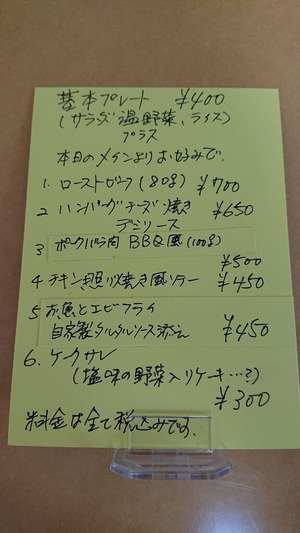 基本プレート ¥400
(サラダ 温野菜、ライス)
プラス
本日のメインよりお好みで、
1. ローストビーフ (80g) ¥700
2 ハンバーグチーズ焼き ¥650
デミソース
3 ポークバラ肉 BBQ風 (100g)
¥500
4 チキン照り焼き風ソテー ¥450
5 お魚とエビフライ
自家製タルタルソース添え ¥450
6. ケークサレ
(塩味の野菜入りケーキ…?)
¥300
料金は全て税込みです。